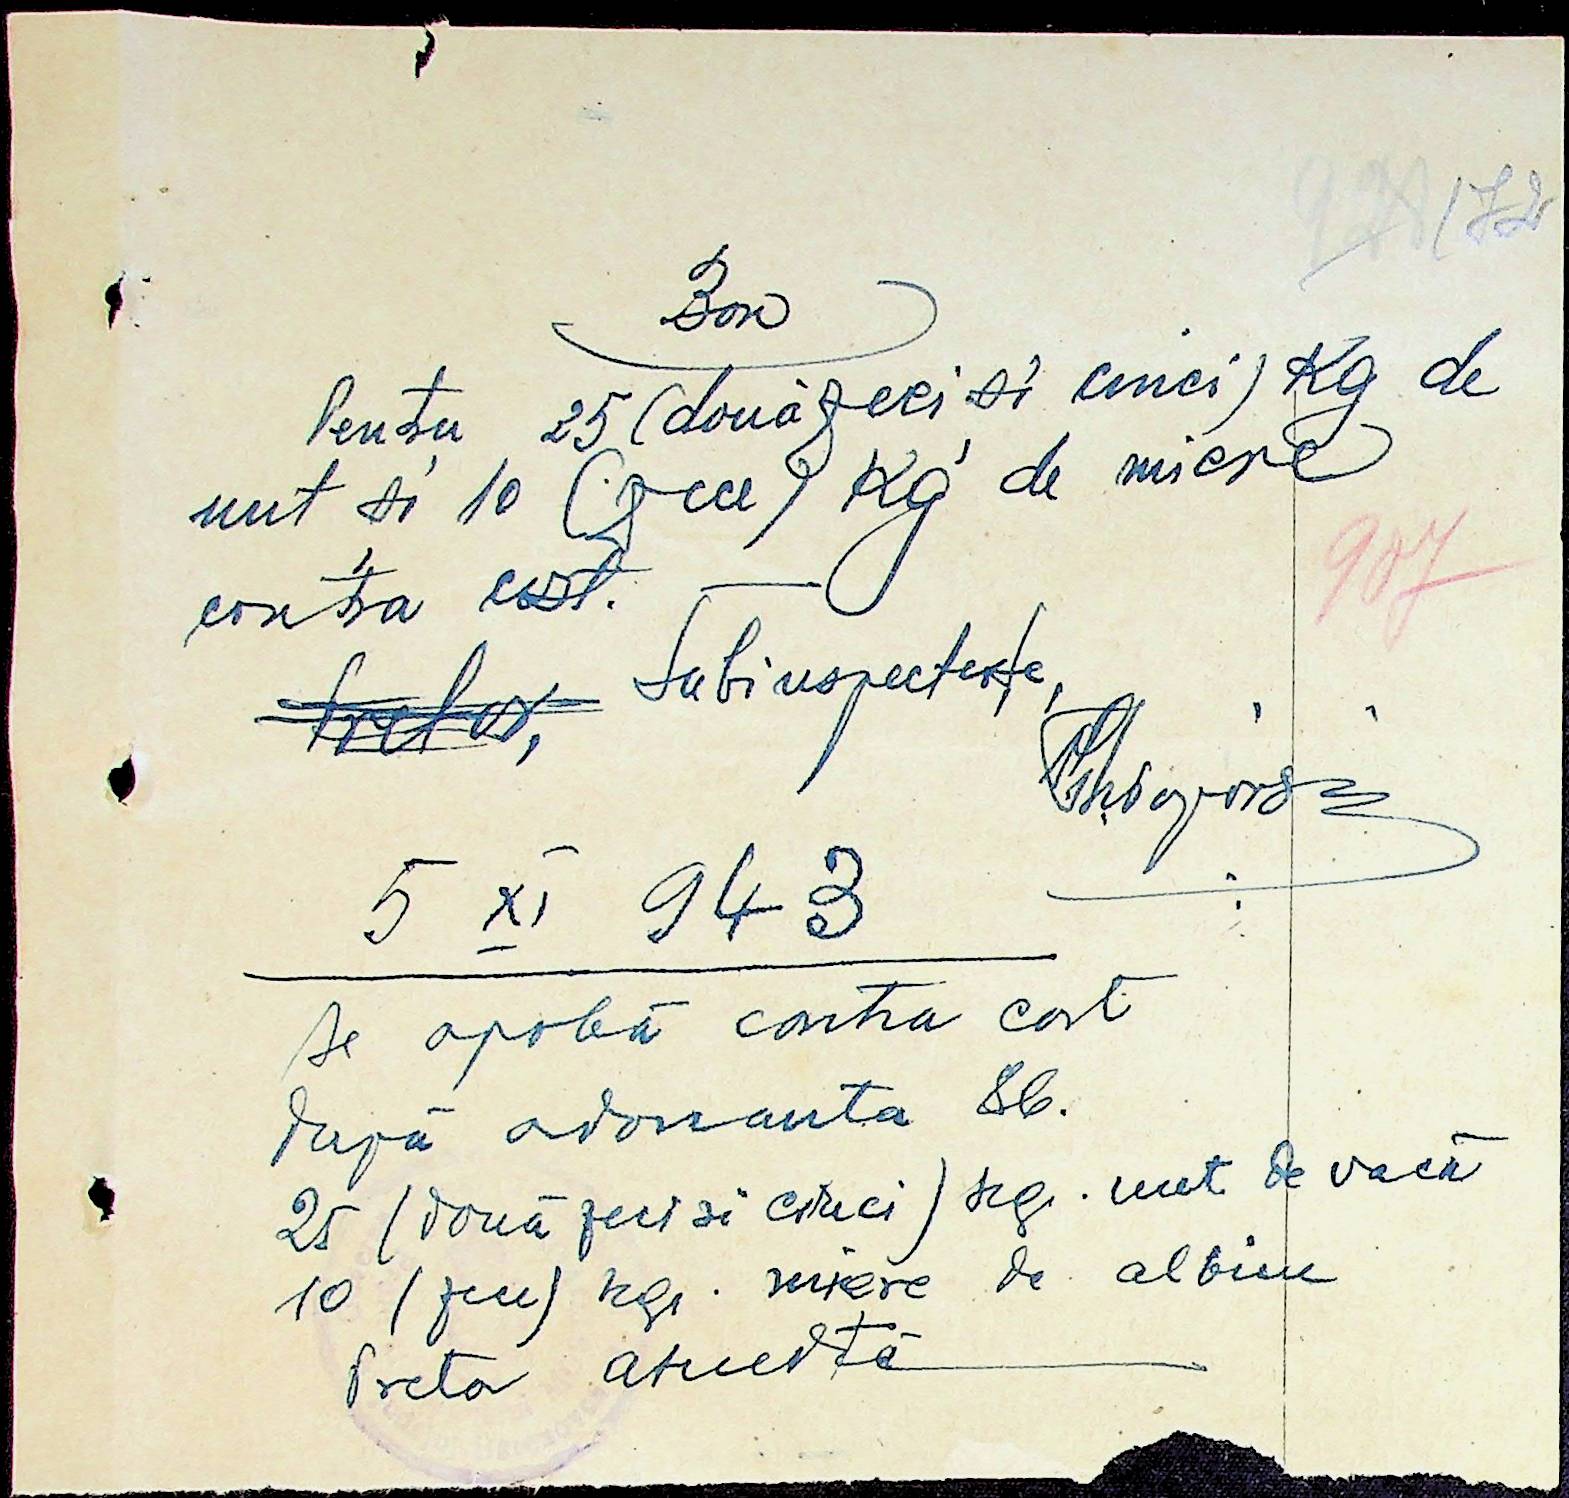 /72
Bon
Pentru 25 (douăzeci si cinci) Kg de
unt si 10 (zece) Kg de miere
907
contra cost.
Pretor, Subinspector,
5 XI 943
se aprobă contra cost
după odonanta 86.
25 (două zeci si cinci) kgr. unt de vacă
10 (zece) kgr. miere de albine
Pretor